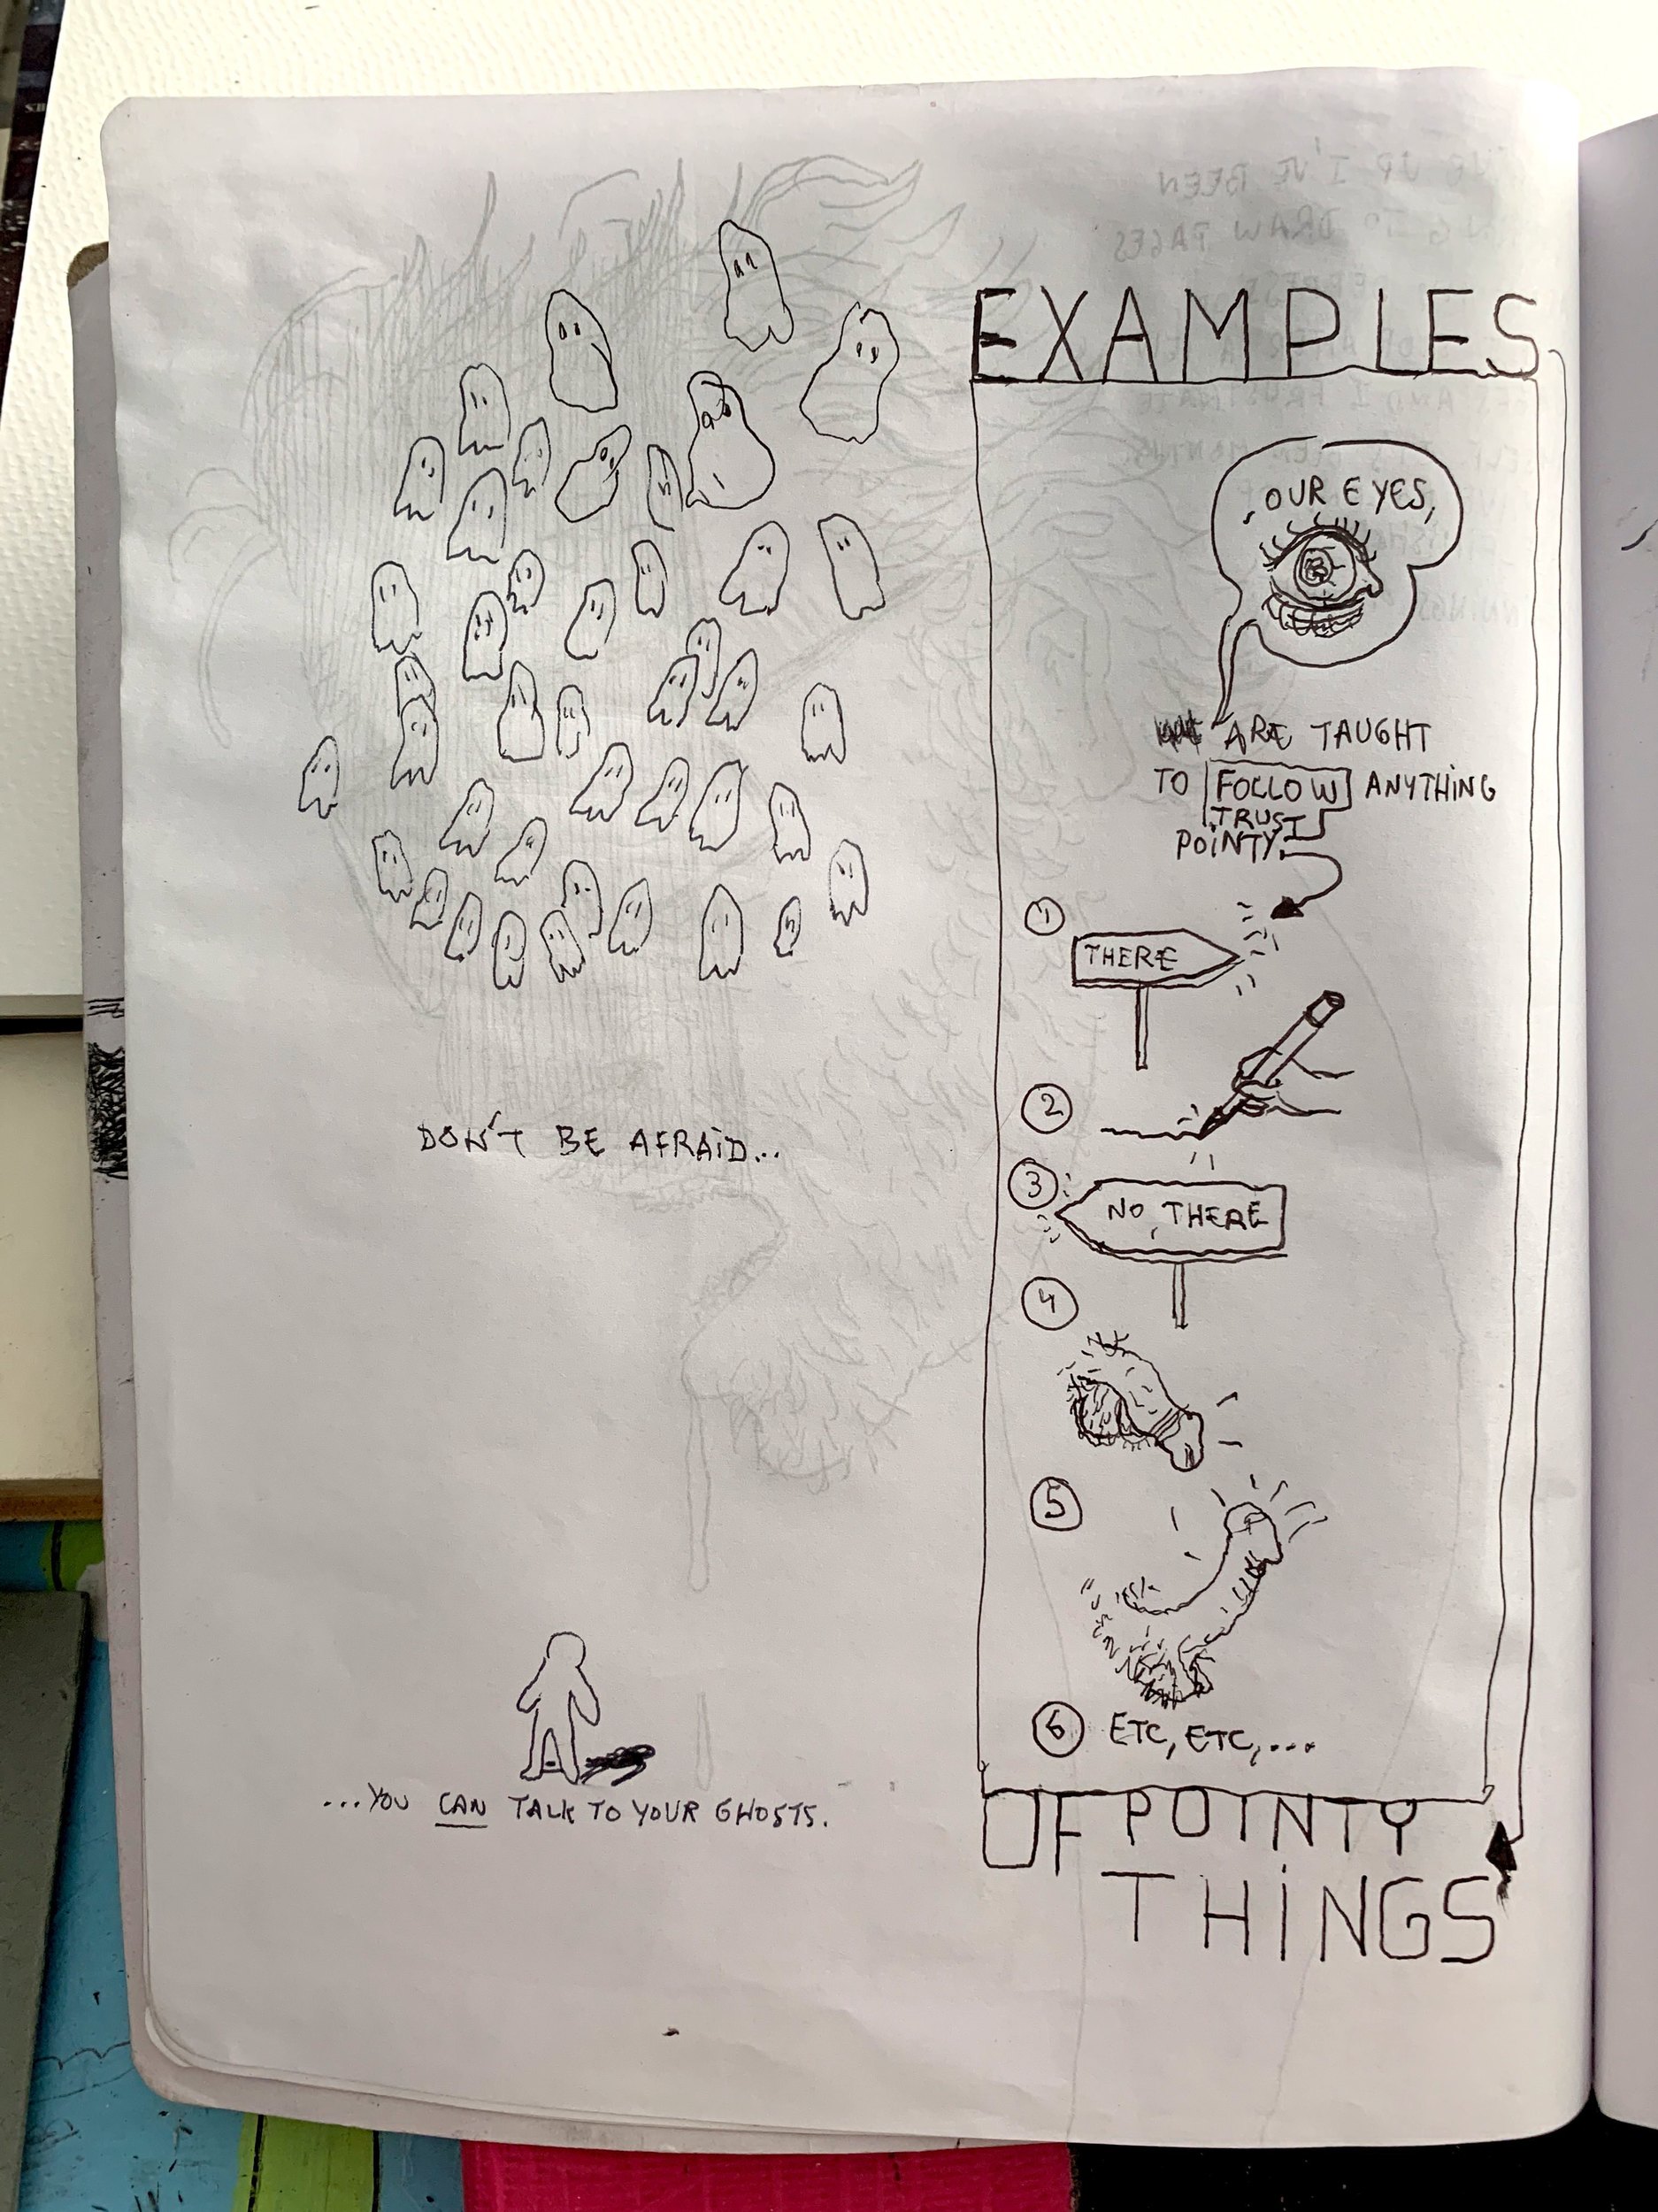 DON'T BE AFRAID...
...YOU CAN TALK TO YOUR GHOSTS.
EXAMPLES
OUR EYES,
ARE TAUGHT
TO FOLLOW ANYTHING
TRUST
POINTY.
1
THERE
2
3
NO, THERE
4
5
6 ETC, ETC,...
OF POINTY
THINGS
I'VE BEEN
DRAW PAGES